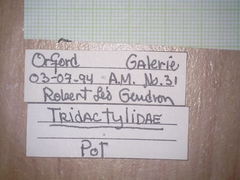 Orford Galerie
03-07-94 A.M. No.31
Robert Léo Gendron
TRIDACTYLIDAE
POT